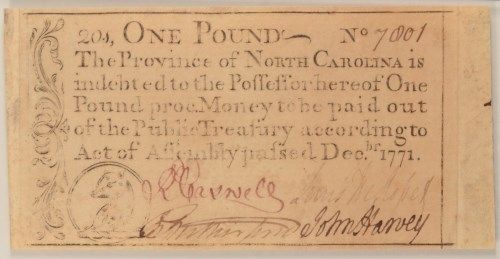 20s, ONE POUND No 7801
The Province of NORTH CAROLINA is
indebted to the Poſſeſſor hereof One
Pound proc. Money to be paid out
of the Public Treaſury according to
Act of Aſſembly paſſed Dec.br 1771.
John Harvey